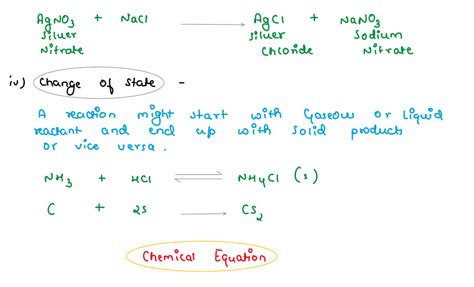 AgNO3 + NaCl → AgCl + NaNO3
Silver Silver Sodium
Nitrate Chloride Nitrate
iv) Change of state -
A reaction might start with Gaseous or Liquid
reactant and end up with Solid products
or vice versa.
NH3 + HCl ⇌ NH4Cl (s)
C + 2S → CS2
Chemical Equation